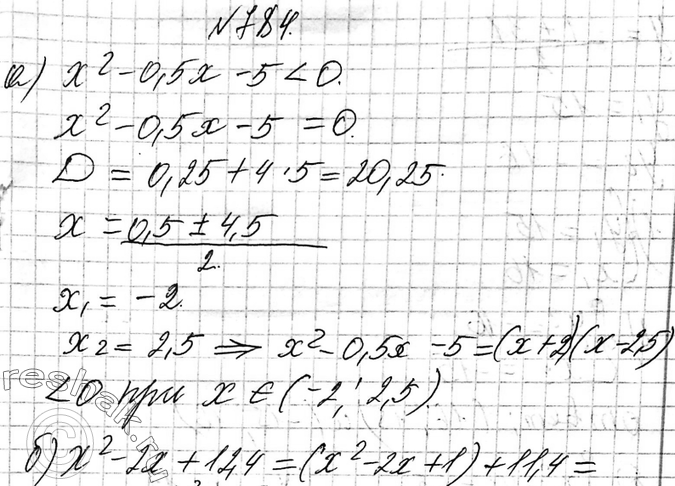 №784.
а) x² - 0,5x - 5 < 0.
x² - 0,5x - 5 = 0.
D = 0,25 + 4·5 = 20,25.
x = (0,5 ± 4,5)/2.
x₁ = -2.
x₂ = 2,5 ⇒ x² - 0,5x - 5 = (x+2)(x-2,5)
< 0 при x ∈ (-2; 2,5).
б) x² - 2x + 12,4 = (x² - 2x + 1) + 11,4 =
reshak.ru